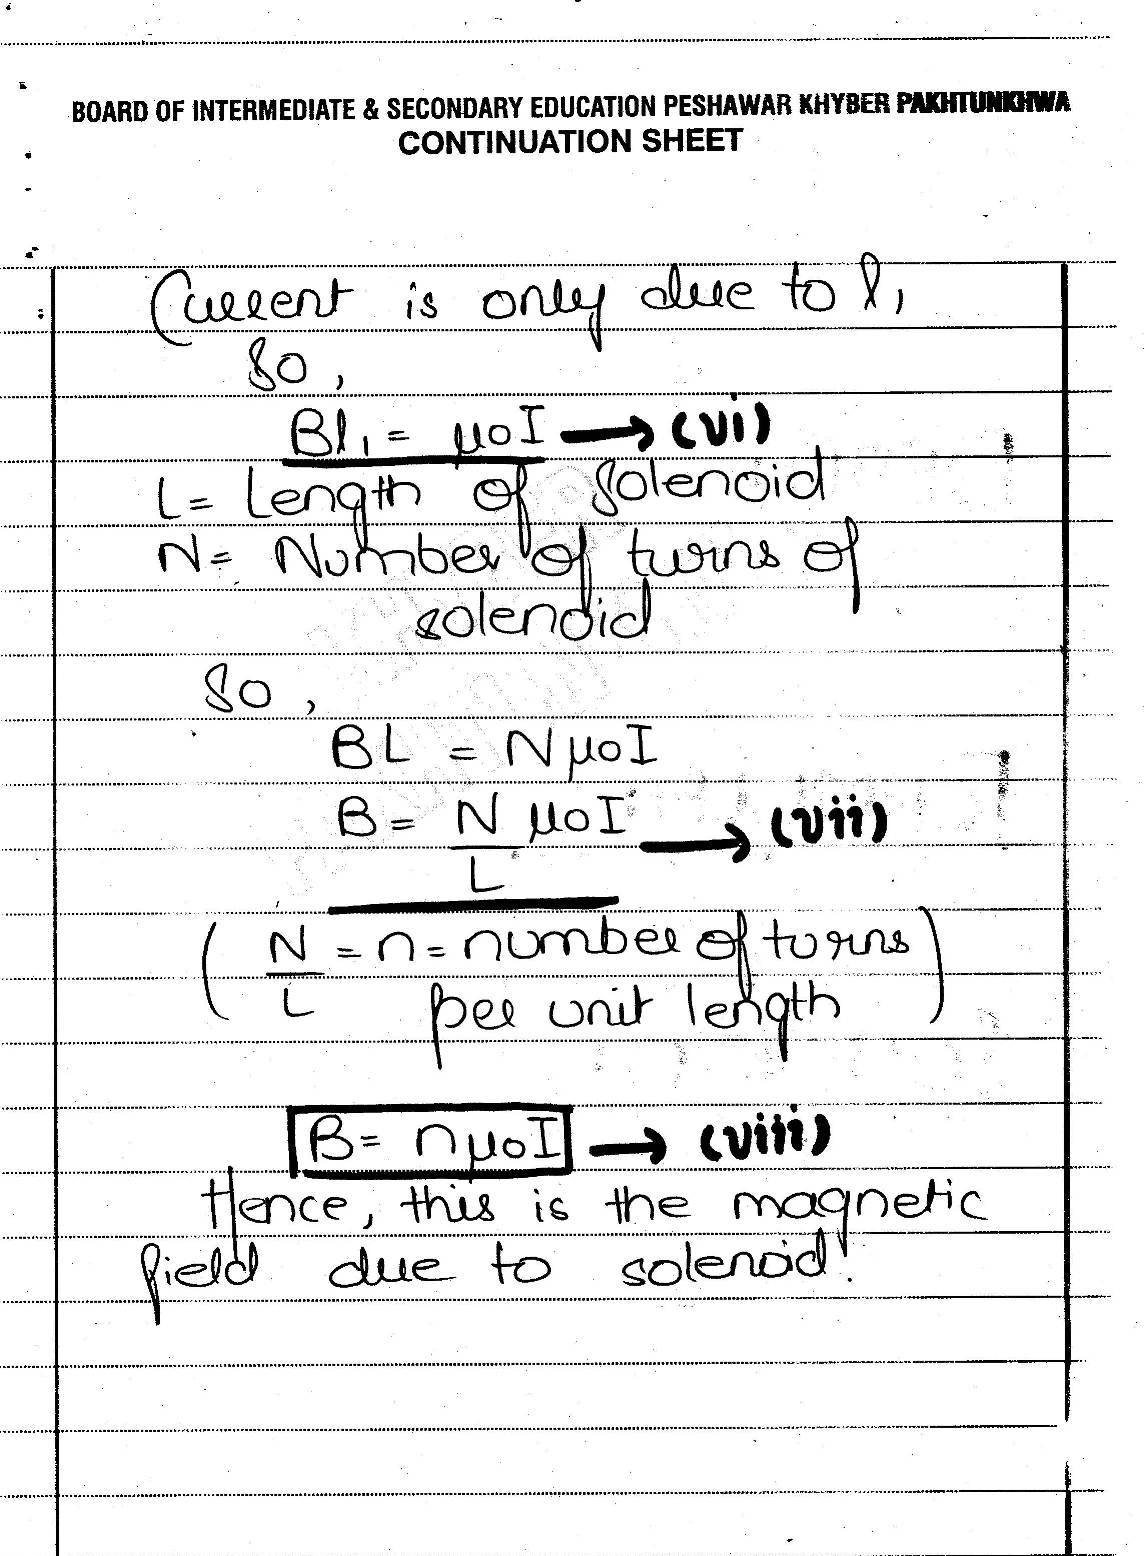 BOARD OF INTERMEDIATE & SECONDARY EDUCATION PESHAWAR KHYBER PAKHTUNKHWA
CONTINUATION SHEET
Current is only due to l₁
So,
Bl₁ = μoI → (vi)
L = Length of solenoid
N = Number of turns of
solenoid
So,
BL = NμoI
B = N/L μoI → (vii)
(N/L = n = number of turns
per unit length)
B = nμoI → (viii)
Hence, this is the magnetic
field due to solenoid.